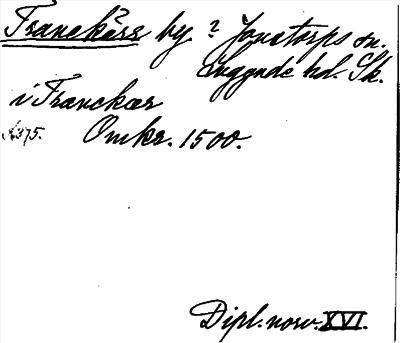 Franekärr by ? Jonstorps sn.
Luggude hd. Sk.
i Franckær
s. 375. Omkr. 1500.
Dipl. norv. XVI.